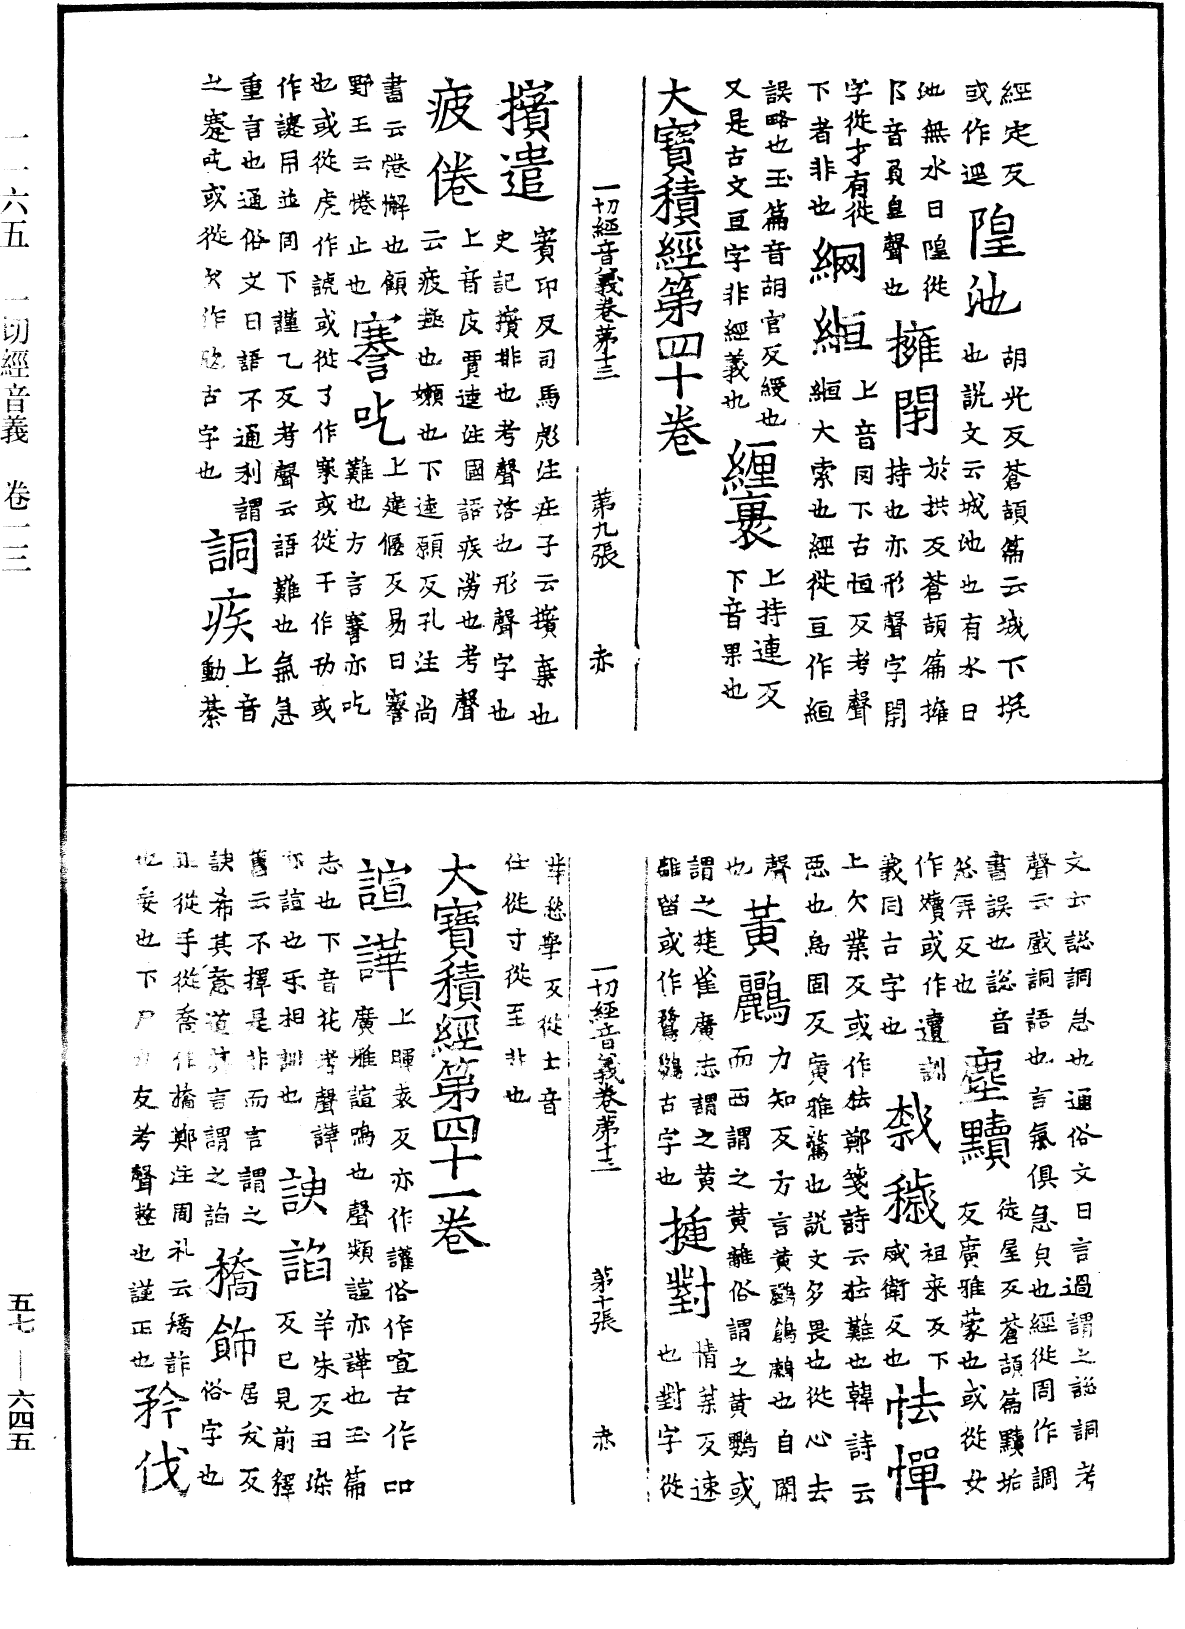 經定反蒼頡篇云城下坑
或作逕 隍池 胡光反蒼頡篇云城下坑也說文云城池也有水曰
池無水曰隍從阝音負皇聲也 擁閇 於拱反蒼頡篇擁持也亦形聲字閇
字從才有從下者非也 綱縆 上音同下古恒反考聲縆大索也經從亘作絙
誤略也玉篇音胡官反綬也又是古文亘字非經義也 纏裹 上持連反下音果也
大寶積經第四十卷
一切經音義卷第十三 第九張 赤
擯遣 賓印反司馬彪注莊子云擯棄也史記擯排也考聲落也形聲字也
疲倦 上音皮賈逵注國語疾勞也考聲云疲極也嬾也下逵願反孔注尚
書云倦懈也顧野王云惓止也 謇吃 上建偃反易曰謇難也方言謇亦吃
也或從虎作謯或從了作搴或從干作㓚或作謇用並同下謹乙反考聲云語難也氣急
重言也通俗文曰語不通利謂之蹇吃或從欠作㰟古字也 詷疾 上音動纂
文云謥詷急也通俗文曰言過謂之謥詷考
聲云戲詞語也言氣俱急皃也經從周作調
書誤也謥音怱弄反也 塵黷 徒屋反蒼頡篇黷垢友廣雅蒙也或從女
作嬻或作遺訓義同古字也 烖穢 祖來反下威衛反也 怯憚
上欠業反或作㹤鄭箋詩云㹤難也韓詩云
惡也烏固反廣雅驚也說文多畏也從心去
聲也 黃鸝 力知反方言黃鸝鶬鶊也自關而西謂之黃離俗謂之黃鸚或
謂之楚雀廣志謂之黃離留或作鵹鵹古字也 捷對 情葉反速也對字從
一切經音義卷第十三 第十張 赤
丵愁學反從士音仕從寸從至非也
大寶積經第四十一卷
諠譁 上暉袁反亦作讙俗作喧古作吅廣雅諠鳴也聲類諠亦譁也玉篇
志也下音花考聲譁亦諠也乎相訓也 諛諂 羊朱反下丑琰反已見前釋
舊云不擇是非而言謂之諛希其意道其言謂之諂 矯飾 居夭反俗字也
正從手從喬作撟鄭注周礼云矯詐也妄也下尸力反考聲整也謹正也 矜伐
一一六五 一切經音義 卷一三
五七 — 六四五